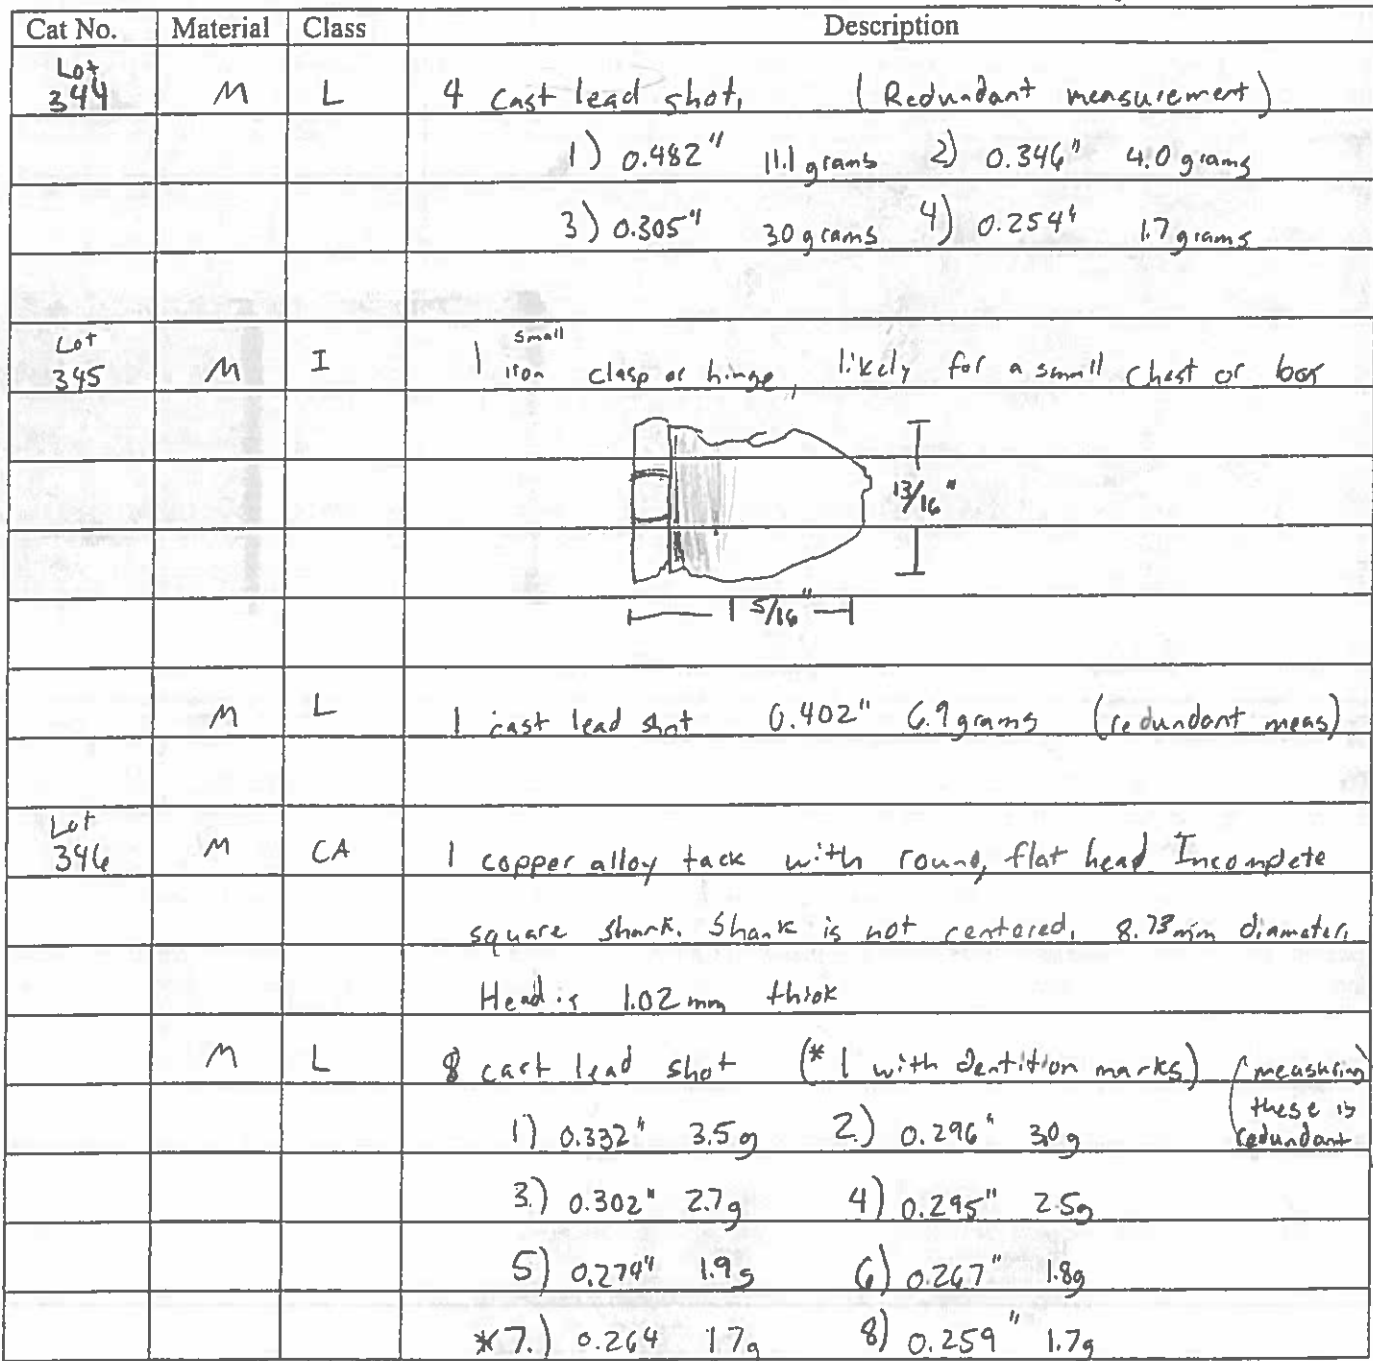 Cat No. Material Class Description
Lot 344 M L 4 Cast lead shot, (Redundant measurement)
1) 0.482" 11.1 grams 2) 0.346" 4.0 grams
3) 0.305" 3.0 grams 4) 0.254" 1.7 grams
Lot 345 M I 1 small iron clasp or hinge, likely for a small chest or box
13/16"
1 5/16"
M L 1 cast lead shot 0.402" 6.9 grams (redundant meas)
Lot 346 M CA 1 copper alloy tack with round, flat head Incomplete
square shank. Shank is not centered. 8.73mm diameter.
Head is 1.02 mm thick
M L 8 cast lead shot (*1 with dentition marks) (measuring these is redundant
1) 0.332" 3.5g 2.) 0.296" 3.0g
3.) 0.302" 2.7g 4) 0.295" 2.5g
5) 0.274" 1.9g 6) 0.267" 1.8g
*7.) 0.264 1.7g 8) 0.259" 1.7g